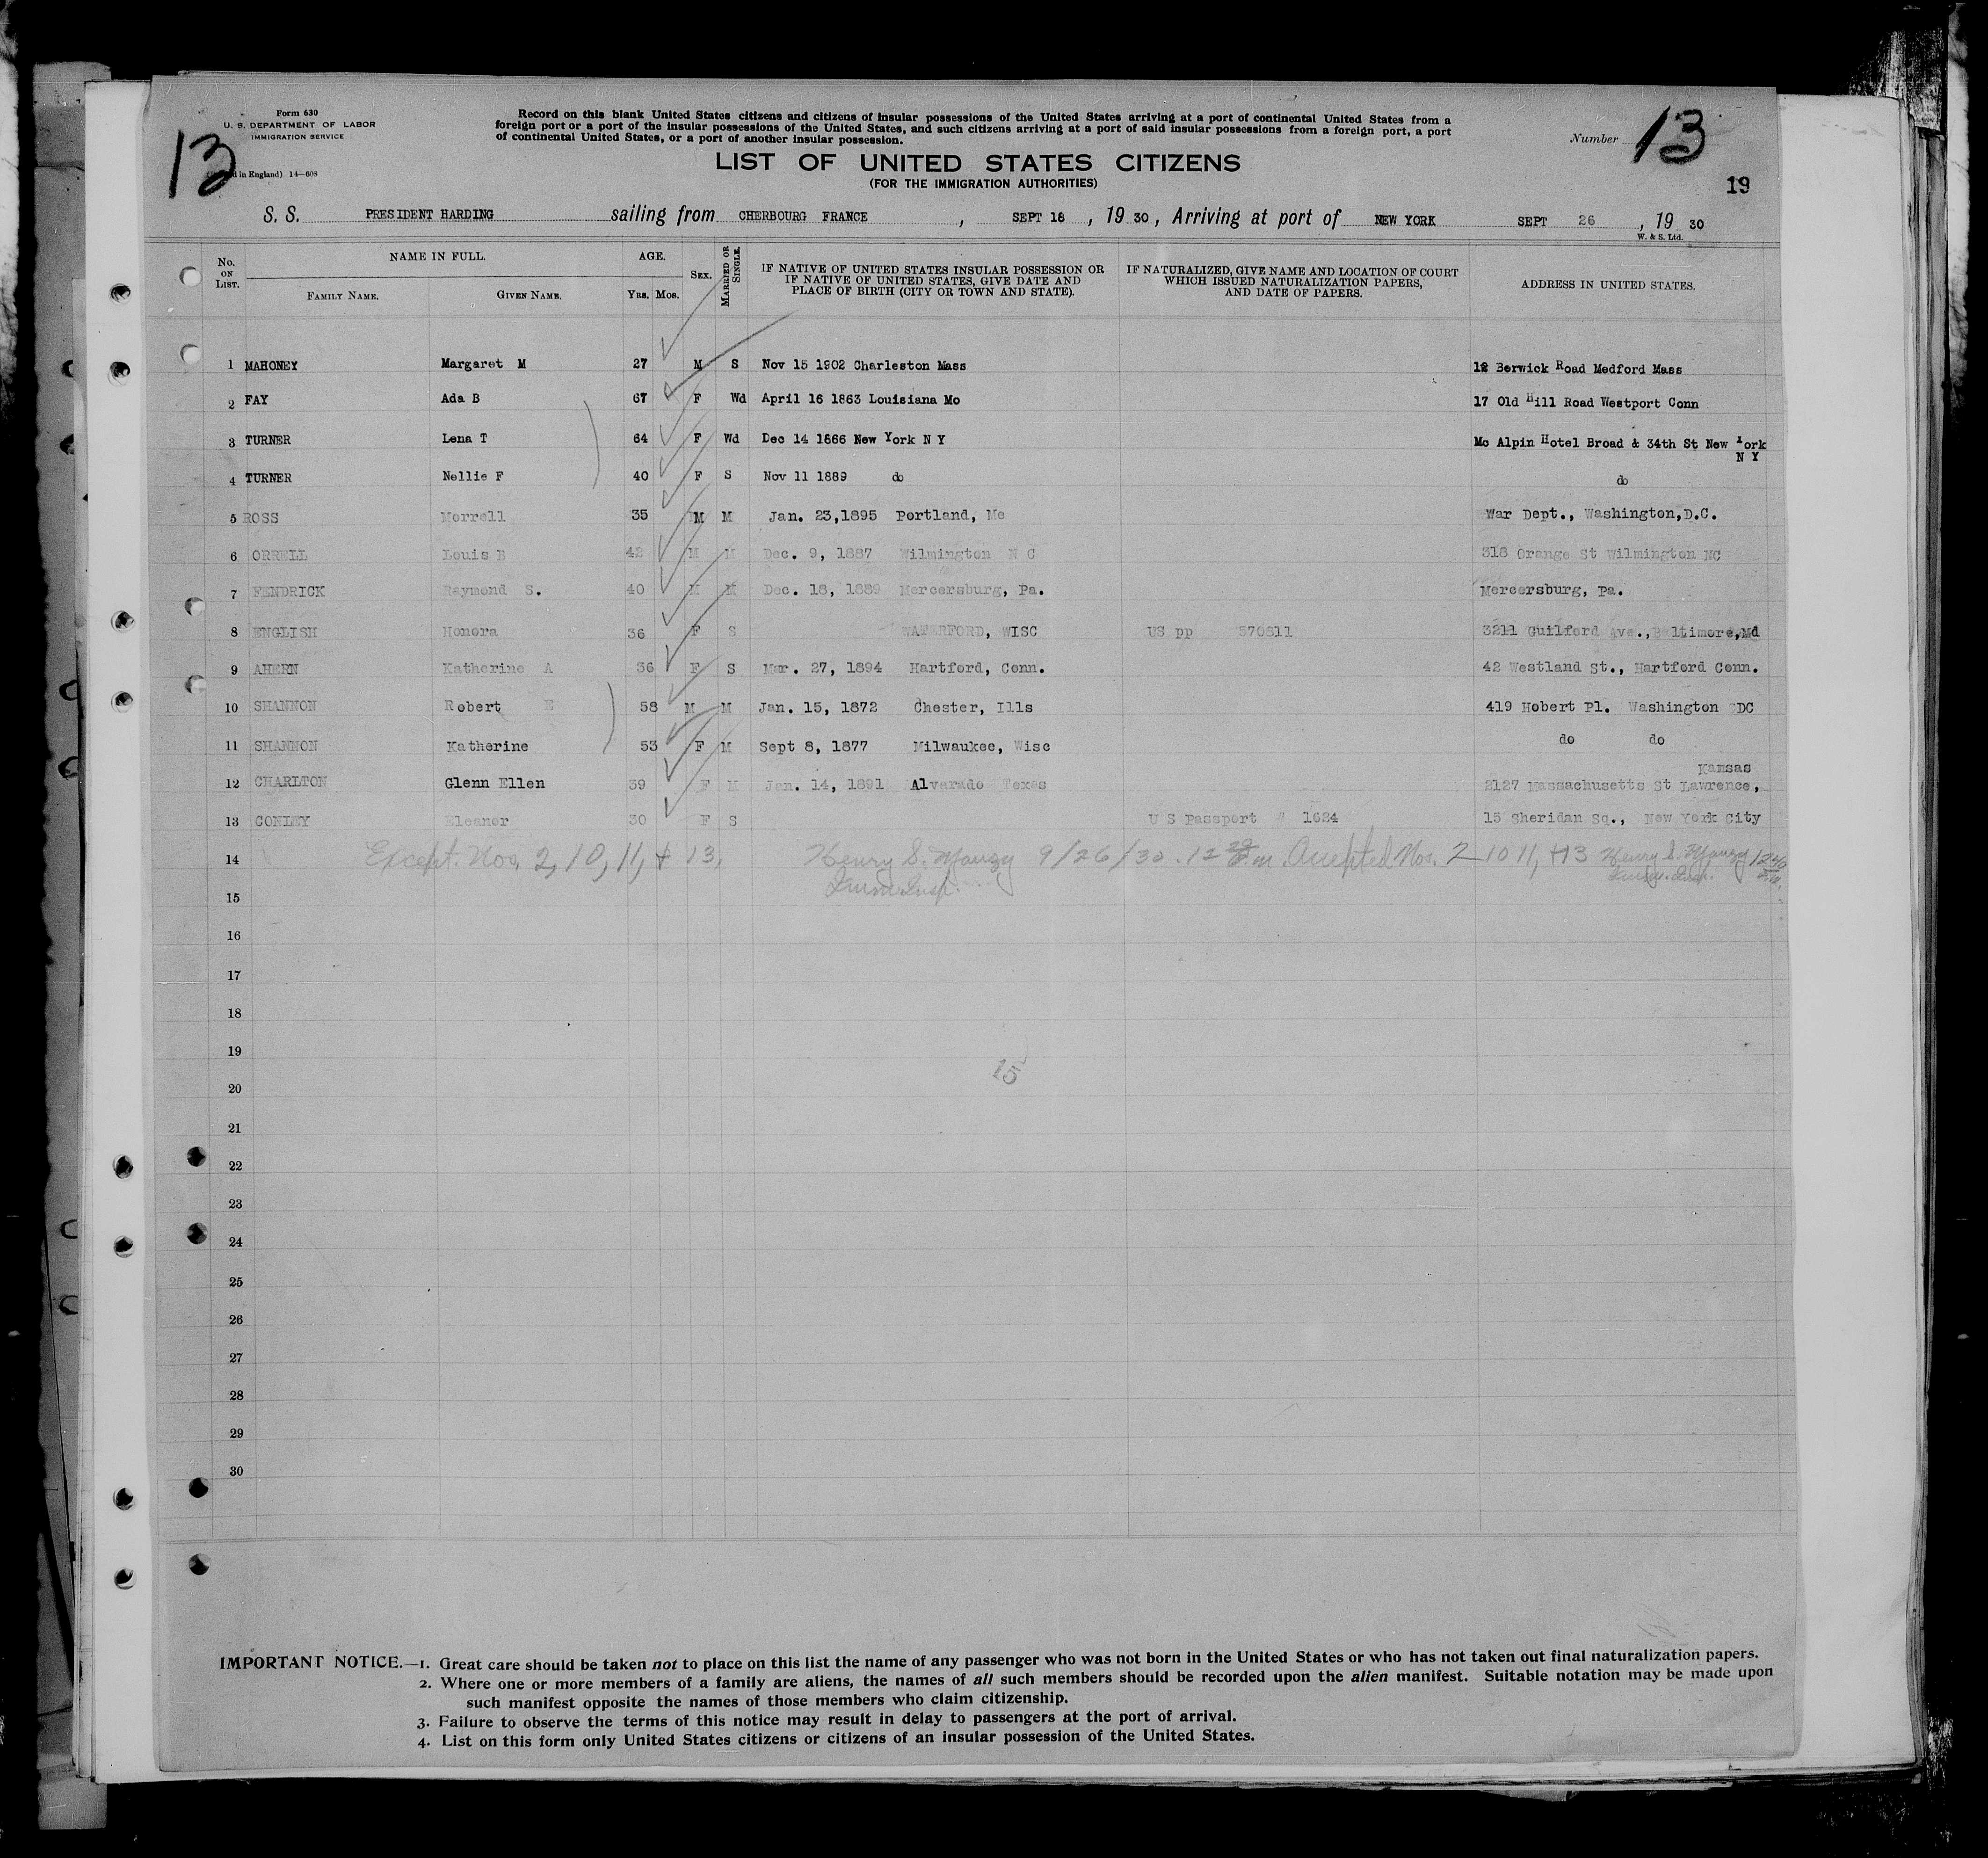 Form 630
U. S. DEPARTMENT OF LABOR
IMMIGRATION SERVICE
13
in England) 14—608
Record on this blank United States citizens and citizens of insular possessions of the United States arriving at a port of continental United States from a
foreign port or a port of the insular possessions of the United States, and such citizens arriving at a port of said insular possessions from a foreign port, a port
of continental United States, or a port of another insular possession.
LIST OF UNITED STATES CITIZENS
(FOR THE IMMIGRATION AUTHORITIES)
Number 13
19
S. S. PRESIDENT HARDING sailing from CHERBOURG FRANCE , SEPT 18 , 19 30 , Arriving at port of NEW YORK SEPT 26 , 19 30
W. & S. Ltd.
No. ON LIST. NAME IN FULL. FAMILY NAME. GIVEN NAME. AGE. YRS. MOS. SEX. MARRIED OR SINGLE. IF NATIVE OF UNITED STATES INSULAR POSSESSION OR IF NATIVE OF UNITED STATES, GIVE DATE AND PLACE OF BIRTH (CITY OR TOWN AND STATE). IF NATURALIZED, GIVE NAME AND LOCATION OF COURT WHICH ISSUED NATURALIZATION PAPERS, AND DATE OF PAPERS. ADDRESS IN UNITED STATES.
1 MAHONEY Margaret M 27 M S Nov 15 1902 Charleston Mass 12 Berwick Road Medford Mass
2 FAY Ada B 67 F Wd April 16 1863 Louisiana Mo 17 Old Hill Road Westport Conn
3 TURNER Lena T 64 F Wd Dec 14 1866 New York N Y Mc Alpin Hotel Broad & 34th St New York
N Y
4 TURNER Nellie F 40 F S Nov 11 1889 do do
5 ROSS Morrell 35 M M Jan. 23,1895 Portland, Me War Dept., Washington,D.C.
6 ORRELL Louis B 42 M M Dec. 9, 1887 Wilmington N C 318 Orange St Wilmington NC
7 FENDRICK Raymond S. 40 M M Dec. 18, 1889 Mercersburg, Pa. Mercersburg, Pa.
8 ENGLISH Honora 36 F S WATERFORD, WISC US pp 570811 3211 Guilford Ave.,Baltimore,Md
9 AHERN Katherine A 36 F S Mar. 27, 1894 Hartford, Conn. 42 Westland St., Hartford Conn.
10 SHANNON Robert E 58 M M Jan. 15, 1872 Chester, Ills 419 Hobert Pl. Washington DC
11 SHANNON Katherine 53 F M Sept 8, 1877 Milwaukee, Wisc do do
Kansas
12 CHARLTON Glenn Ellen 39 F M Jan. 14, 1891 Alvarado Texas 2127 Massachusetts St Lawrence,
13 CONLEY Eleanor 30 F S U S Passport # 1624 15 Sheridan Sq., New York City
14 Except. Nos. 2, 10, 11, + 13, Henry S. Mauzy 9/26/30. 12 m. Accepted Nos. 2 10 11, +13 Henry S. Mauzy 12
Imm. Insp. Immgr. Insp.
15
16
17
18
19
15
20
21
22
23
24
25
26
27
28
29
30
IMPORTANT NOTICE.—1. Great care should be taken not to place on this list the name of any passenger who was not born in the United States or who has not taken out final naturalization papers.
2. Where one or more members of a family are aliens, the names of all such members should be recorded upon the alien manifest. Suitable notation may be made upon
such manifest opposite the names of those members who claim citizenship.
3. Failure to observe the terms of this notice may result in delay to passengers at the port of arrival.
4. List on this form only United States citizens or citizens of an insular possession of the United States.